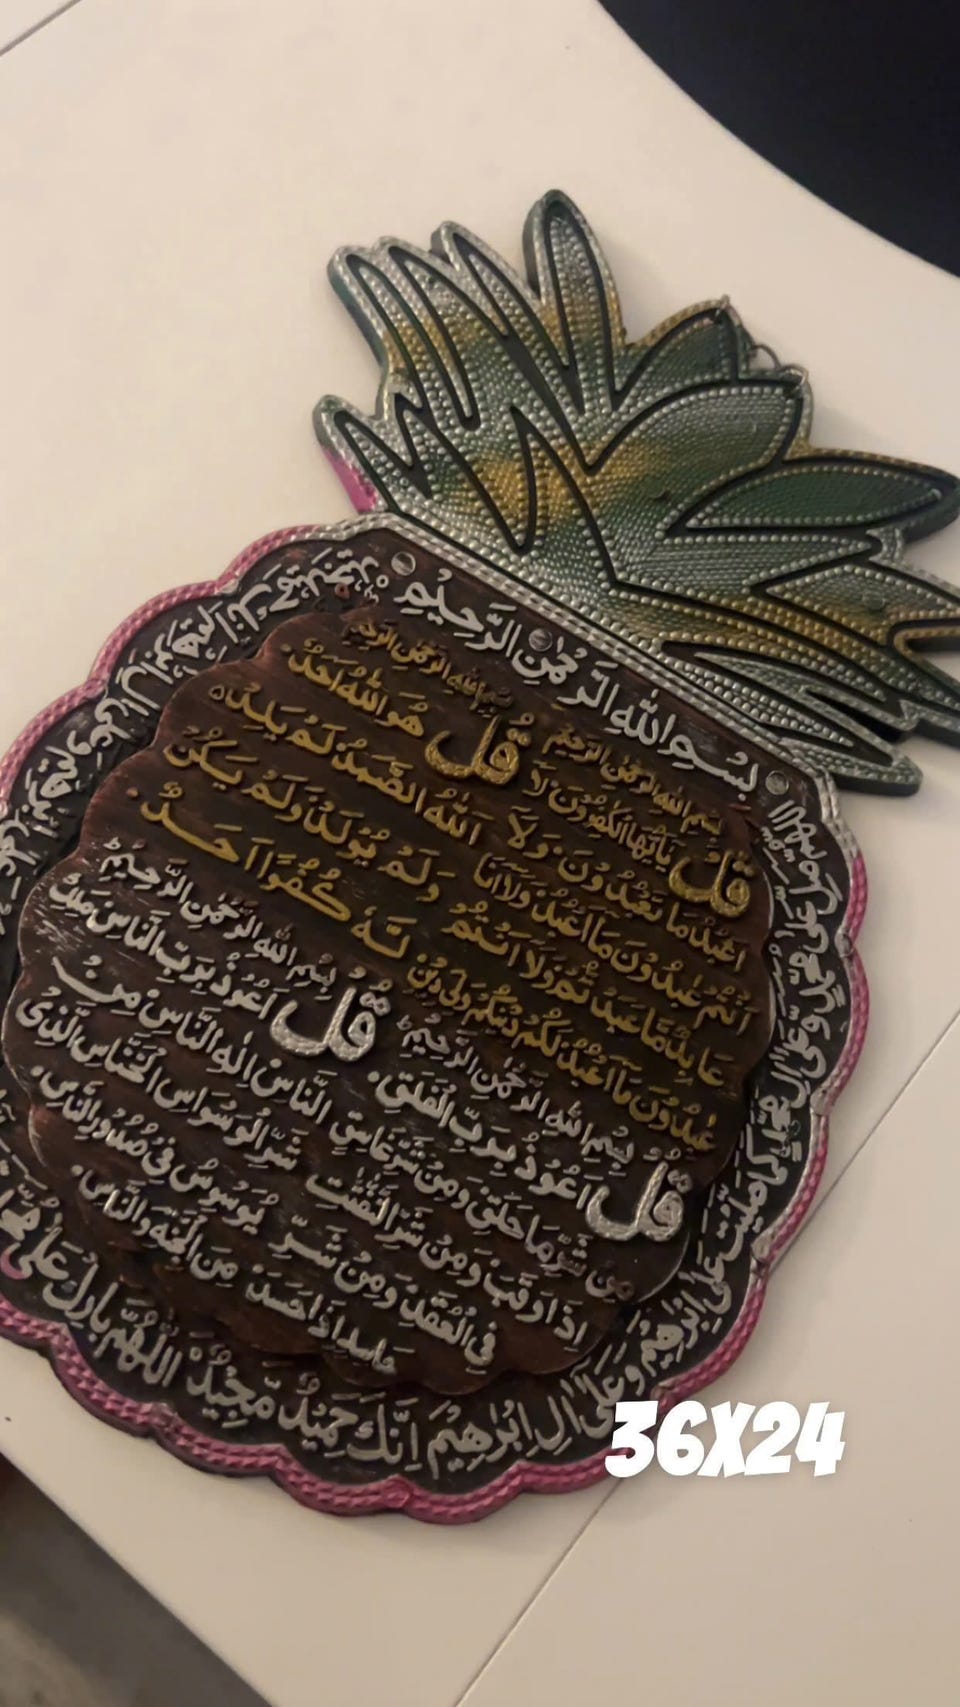 بِسْمِ اللهِ الرَّحْمٰنِ الرَّحِيْمِ
بِسْمِ اللهِ الرَّحْمٰنِ الرَّحِيْمِ
قُلْ يٰٓاَيُّهَا الْكٰفِرُوْنَ لَآ
اَعْبُدُ مَا تَعْبُدُوْنَ وَلَآ
اَنْتُمْ عٰبِدُوْنَ مَآ اَعْبُدُ وَلَآ اَنَا
عَابِدٌ مَّا عَبَدْتُّمْ وَلَآ اَنْتُمْ
عٰبِدُوْنَ مَآ اَعْبُدُ لَكُمْ دِيْنُكُمْ وَلِيَ دِيْنِ
بِسْمِ اللهِ الرَّحْمٰنِ الرَّحِيْمِ
قُلْ هُوَ اللهُ اَحَدٌ
اَللهُ الصَّمَدُ لَمْ يَلِدْ
وَلَمْ يُوْلَدْ وَلَمْ يَكُنْ
لَّهٗ كُفُوًا اَحَدٌ
بِسْمِ اللهِ الرَّحْمٰنِ الرَّحِيْمِ
قُلْ اَعُوْذُ بِرَبِّ الْفَلَقِ
مِنْ شَرِّ مَا خَلَقَ وَمِنْ شَرِّ غَاسِقٍ
اِذَا وَقَبَ وَمِنْ شَرِّ النَّفّٰثٰتِ
فِى الْعُقَدِ وَمِنْ شَرِّ
حَاسِدٍ اِذَا حَسَدَ
بِسْمِ اللهِ الرَّحْمٰنِ الرَّحِيْمِ
قُلْ اَعُوْذُ بِرَبِّ النَّاسِ مَلِكِ
النَّاسِ اِلٰهِ النَّاسِ مِنْ
شَرِّ الْوَسْوَاسِ الْخَنَّاسِ الَّذِىْ
يُوَسْوِسُ فِىْ صُدُوْرِ النَّاسِ
مِنَ الْجِنَّةِ وَالنَّاسِ
اللّٰهُمَّ صَلِّ عَلٰى مُحَمَّدٍ وَّعَلٰٓى اٰلِ مُحَمَّدٍ كَمَا صَلَّيْتَ عَلٰٓى اِبْرٰهِيْمَ وَعَلٰٓى اٰلِ اِبْرٰهِيْمَ اِنَّكَ حَمِيْدٌ مَّجِيْدٌ اَللّٰهُمَّ بَارِكْ عَلٰى
اِبْرٰهِيْمَ وَعَلٰٓى اٰلِ اِبْرٰهِيْمَ اِنَّكَ حَمِيْدٌ مَّجِيْدٌ
36X24